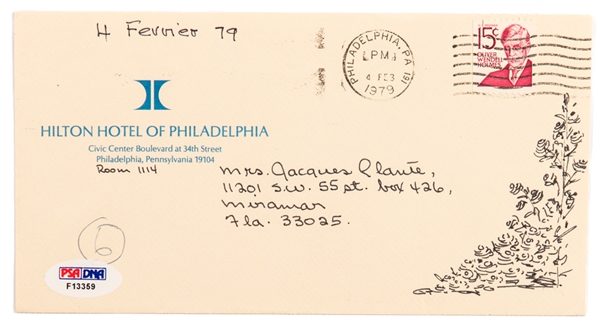 4 Fevrier 79
PHILADELPHIA, PA 191
PM
4 FEB
1979
15c
OLIVER
WENDELL
HOLMES
HILTON HOTEL OF PHILADELPHIA
Civic Center Boulevard at 34th Street
Philadelphia, Pennsylvania 19104
Room 1114
Mrs. Jacques Plante,
11201 S.W. 55 st. box 426,
Miramar
Fla. 33025.
6
PSA DNA
F13359